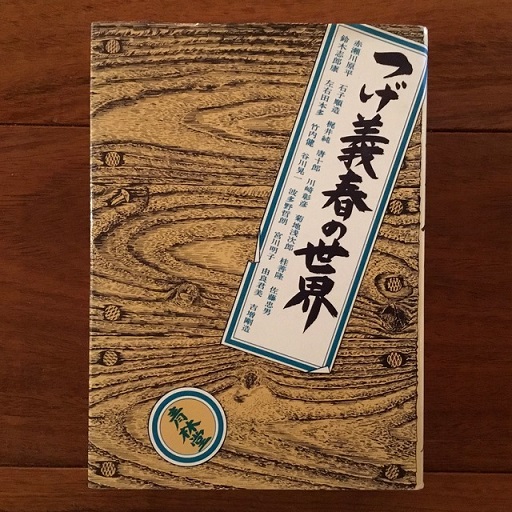 つげ義春の世界
赤瀬川原平 石子順造 梶井純 唐十郎 川崎彰彦 菊地浅次郎 桂善隆 佐藤忠男
鈴木志郎康 左右田本多 竹内健 谷川晃一 波多野哲朗 宮川明子 由良君美 吉増剛造
青林堂